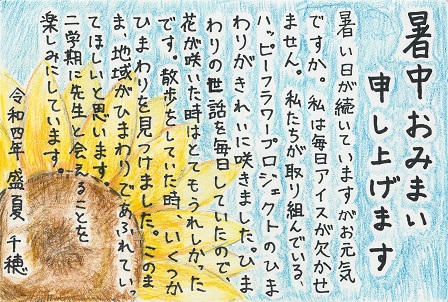 暑中おみまい
申し上げます
暑い日が続いていますがお元気
ですか。私は毎日アイスが欠かせ
ません。私たちが取り組んでいる、
ハッピーフラワープロジェクトのひま
わりがきれいに咲きました。ひま
わりの世話を毎日していたので、
花が咲いた時はとてもうれしかった
です。散歩をしていた時、いくつか
ひまわりを見つけました。このま
ま、地域がひまわりであふれていっ
てほしいと思います。
二学期に先生と会えることを
楽しみにしています。
令和四年 盛夏 千穂